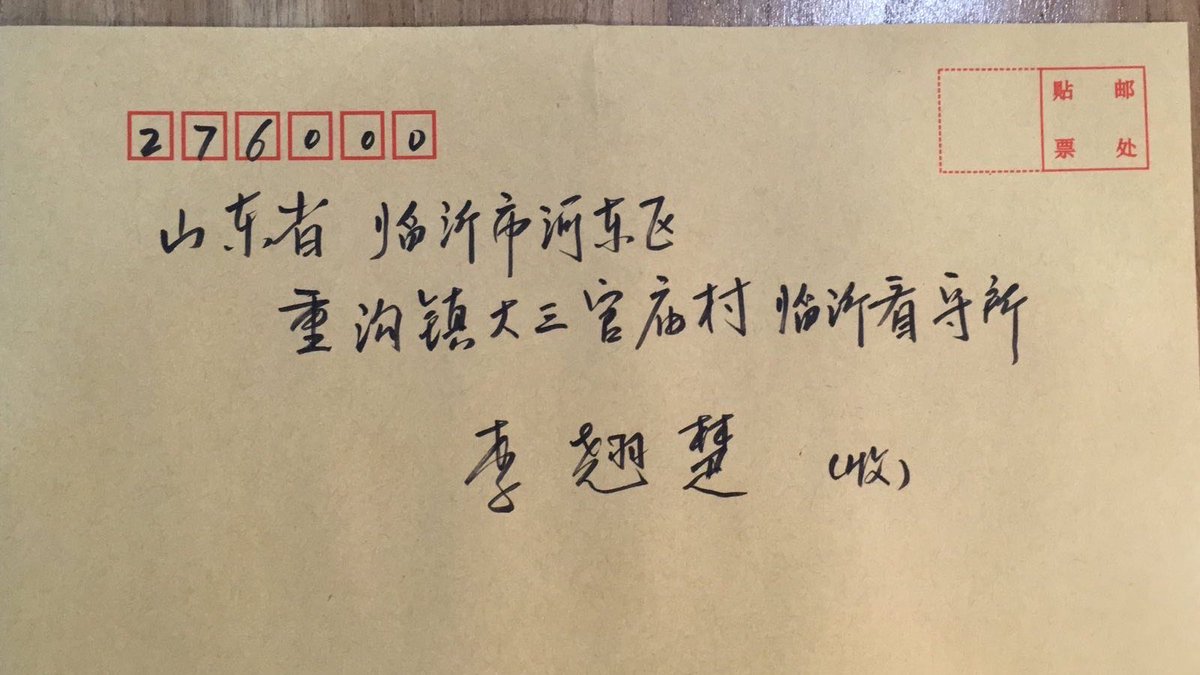 276000
贴 邮
票 处
山东省 临沂市河东区
重沟镇大三官庙村临沂看守所
李翘楚 (收)